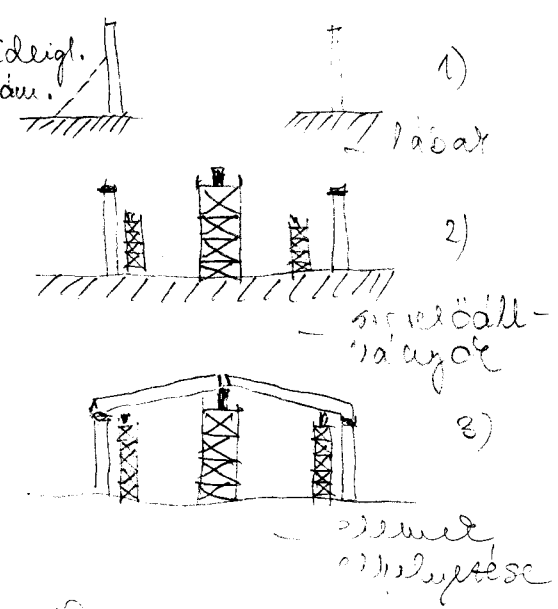 ideigl.
tám.
1)
- lábak
2)
- szerelőáll-
ványok
3)
- elemek
elhelyezése